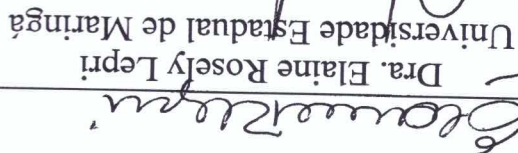 Dra. Elaine Rosely Lepri
Universidade Estadual de Maringá